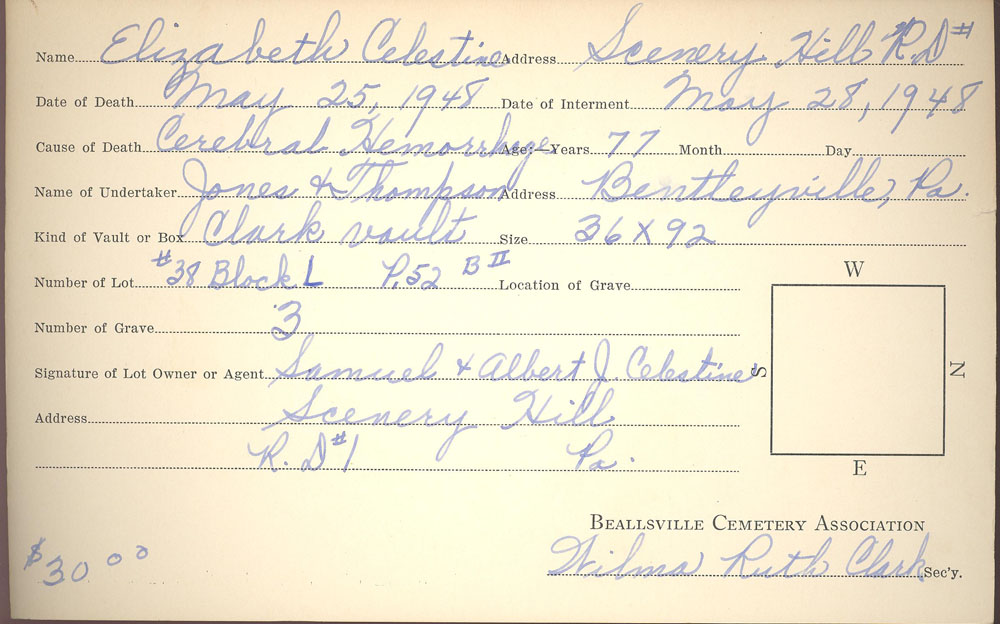 Name Elizabeth Celestine Address Scenery Hill R.D#
Date of Death May 25, 1948 Date of Interment May 28, 1948
Cause of Death Cerebral Hemorrhage Age:—Years 77 Month Day
Name of Undertaker Jones & Thompson Address Bentleyville, Pa.
Kind of Vault or Box Clark vault Size 36 X 92
Number of Lot #38 Block L P.52 B II Location of Grave
Number of Grave 3
Signature of Lot Owner or Agent Samuel & Albert J Celestine
Address Scenery Hill
R.D#1 Pa.
W
S
N
E
BEALLSVILLE CEMETERY ASSOCIATION
Wilma Ruth Clark Sec'y.
$30 00